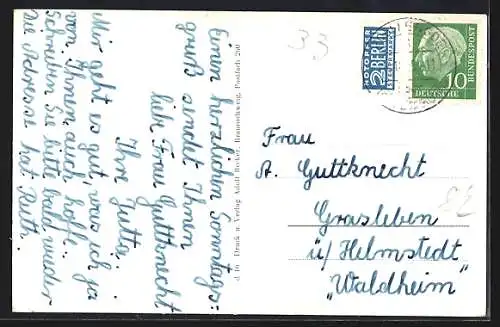 Einen herzlichen Sonntags=
gruß sendet Ihnen
liebe Frau Guttknecht
Ihre Jutta.
Mir geht es gut, was ich ja
von Ihnen auch hoffe.
Schreiben Sie bitte bald wieder
die Adresse hat Ruth.
Druck u. Verlag Adolf Braunschweig, Postfach 260
33
NOTOPFER
2 BERLIN
STEUERMARKE
10
DEUTSCHE
BUNDESPOST
Frau
A. Guttknecht
Grasleben
ü/ Helmstedt
"Waldheim"